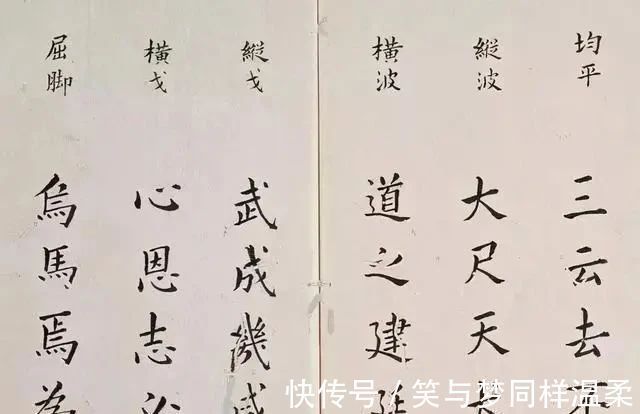 均平
三云去
縱波
大尺天
橫波
道之建
縱戈
武成幾
橫戈
心恩志必
屈脚
烏馬焉為
快传号／笑与梦同样温柔